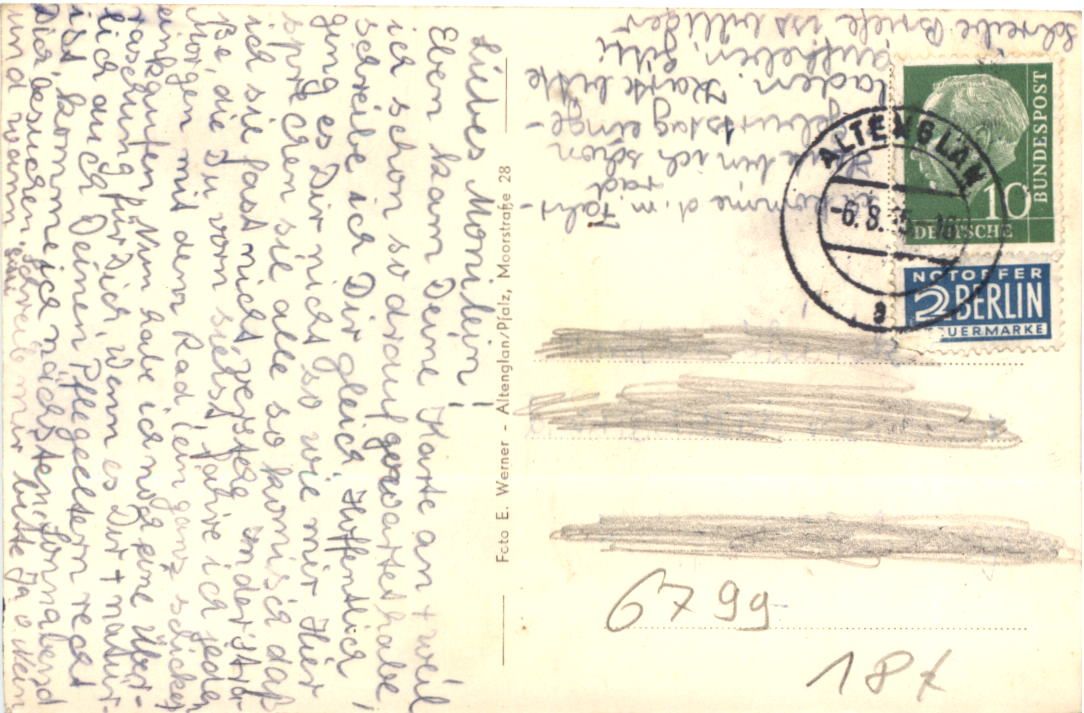 Liebes Monilein!
Eben kam Deine Karte an + weil
ich schon so drauf gewartet habe,
schreibe ich Dir gleich. Hoffentlich
ging es Dir nicht so wie mir. Hier
sprechen sie alle so komisch daß
ich sie fast nicht verstehe. In der Stra-
ße, die Du vorn siehst, fahre ich jeden
Morgen mit dem Rad (ein ganz schickes)
einkaufen. Nun habe ich noch eine Über-
raschung für Dich. Wenn es Dir + natür-
lich auch Deinen Pflegeeltern recht
ist, komme ich nächsten Sonnabend
Dich besuchen. Schreib mir bitte Ja o. Nein
und wann.
Komme d. m. Fahr-
rad
bin ich schon
Geburtstag einge-
laden. Karte bitte
aufheben. Gitti
schreibe Briefe ist billiger
Foto E. Werner - Altenglan/Pfalz, Moorstraße 28
ALTENGLAN
-6.8.
a
10
DEUTSCHE
BUNDESPOST
NOTOPFER
2 BERLIN
STEUERMARKE
6799
18t